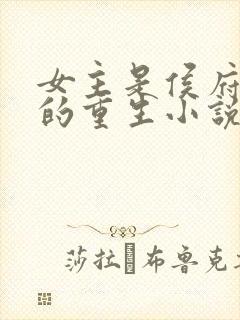 女主是侯府
的重生小说
莎拉 布鲁克